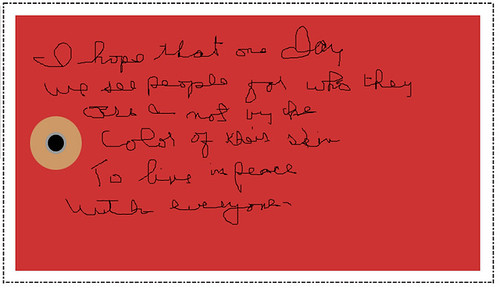 I hope that one Day
we see people for who they
are not by the
Color of their skin
To live in peace
with everyone